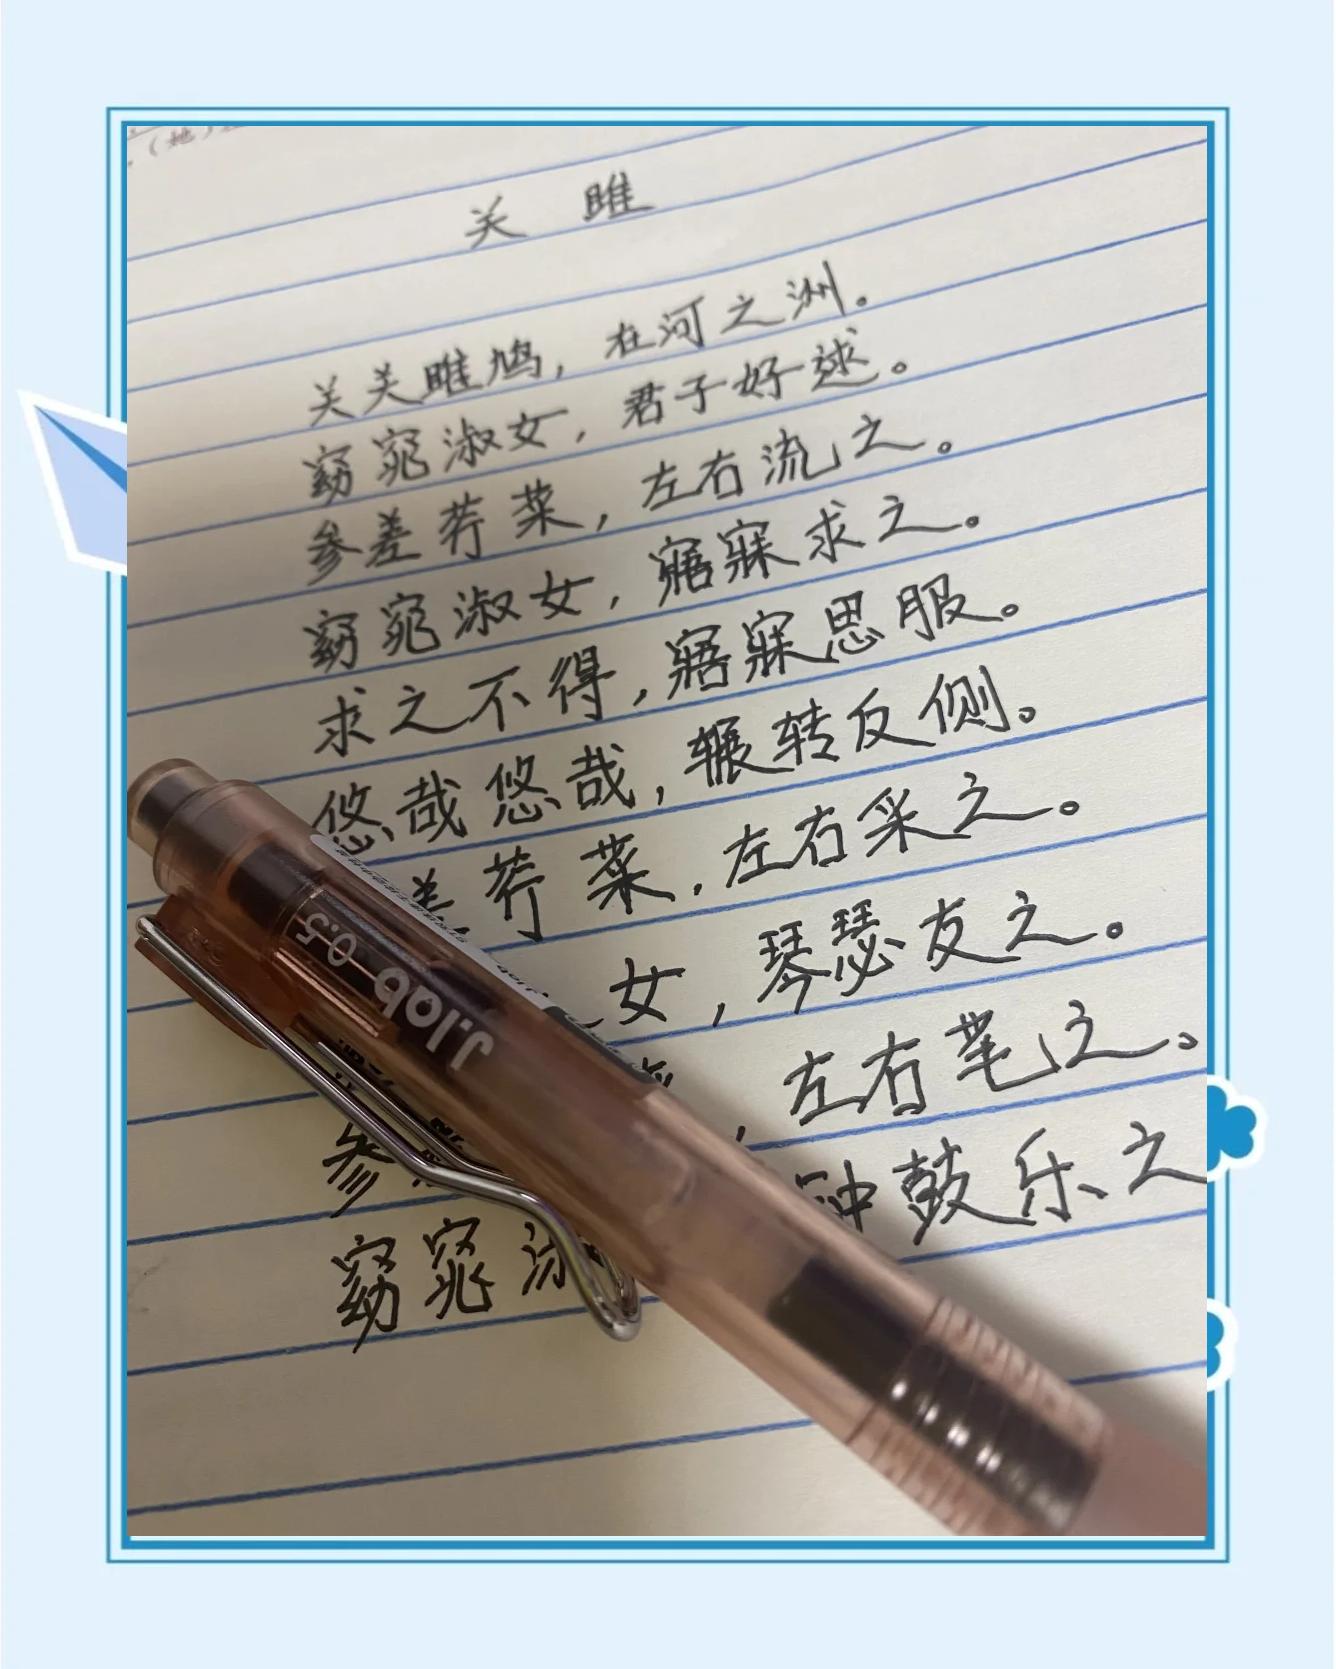 （她）
关 雎
关关雎鸠，在河之洲。
窈窕淑女，君子好逑。
参差荇菜，左右流之。
窈窕淑女，寤寐求之。
求之不得，寤寐思服。
悠哉悠哉，辗转反侧。
差荇菜，左右采之。
女，琴瑟友之。
，左右芼之。
参
窈窕淑 钟鼓乐之
J.lob 0.5